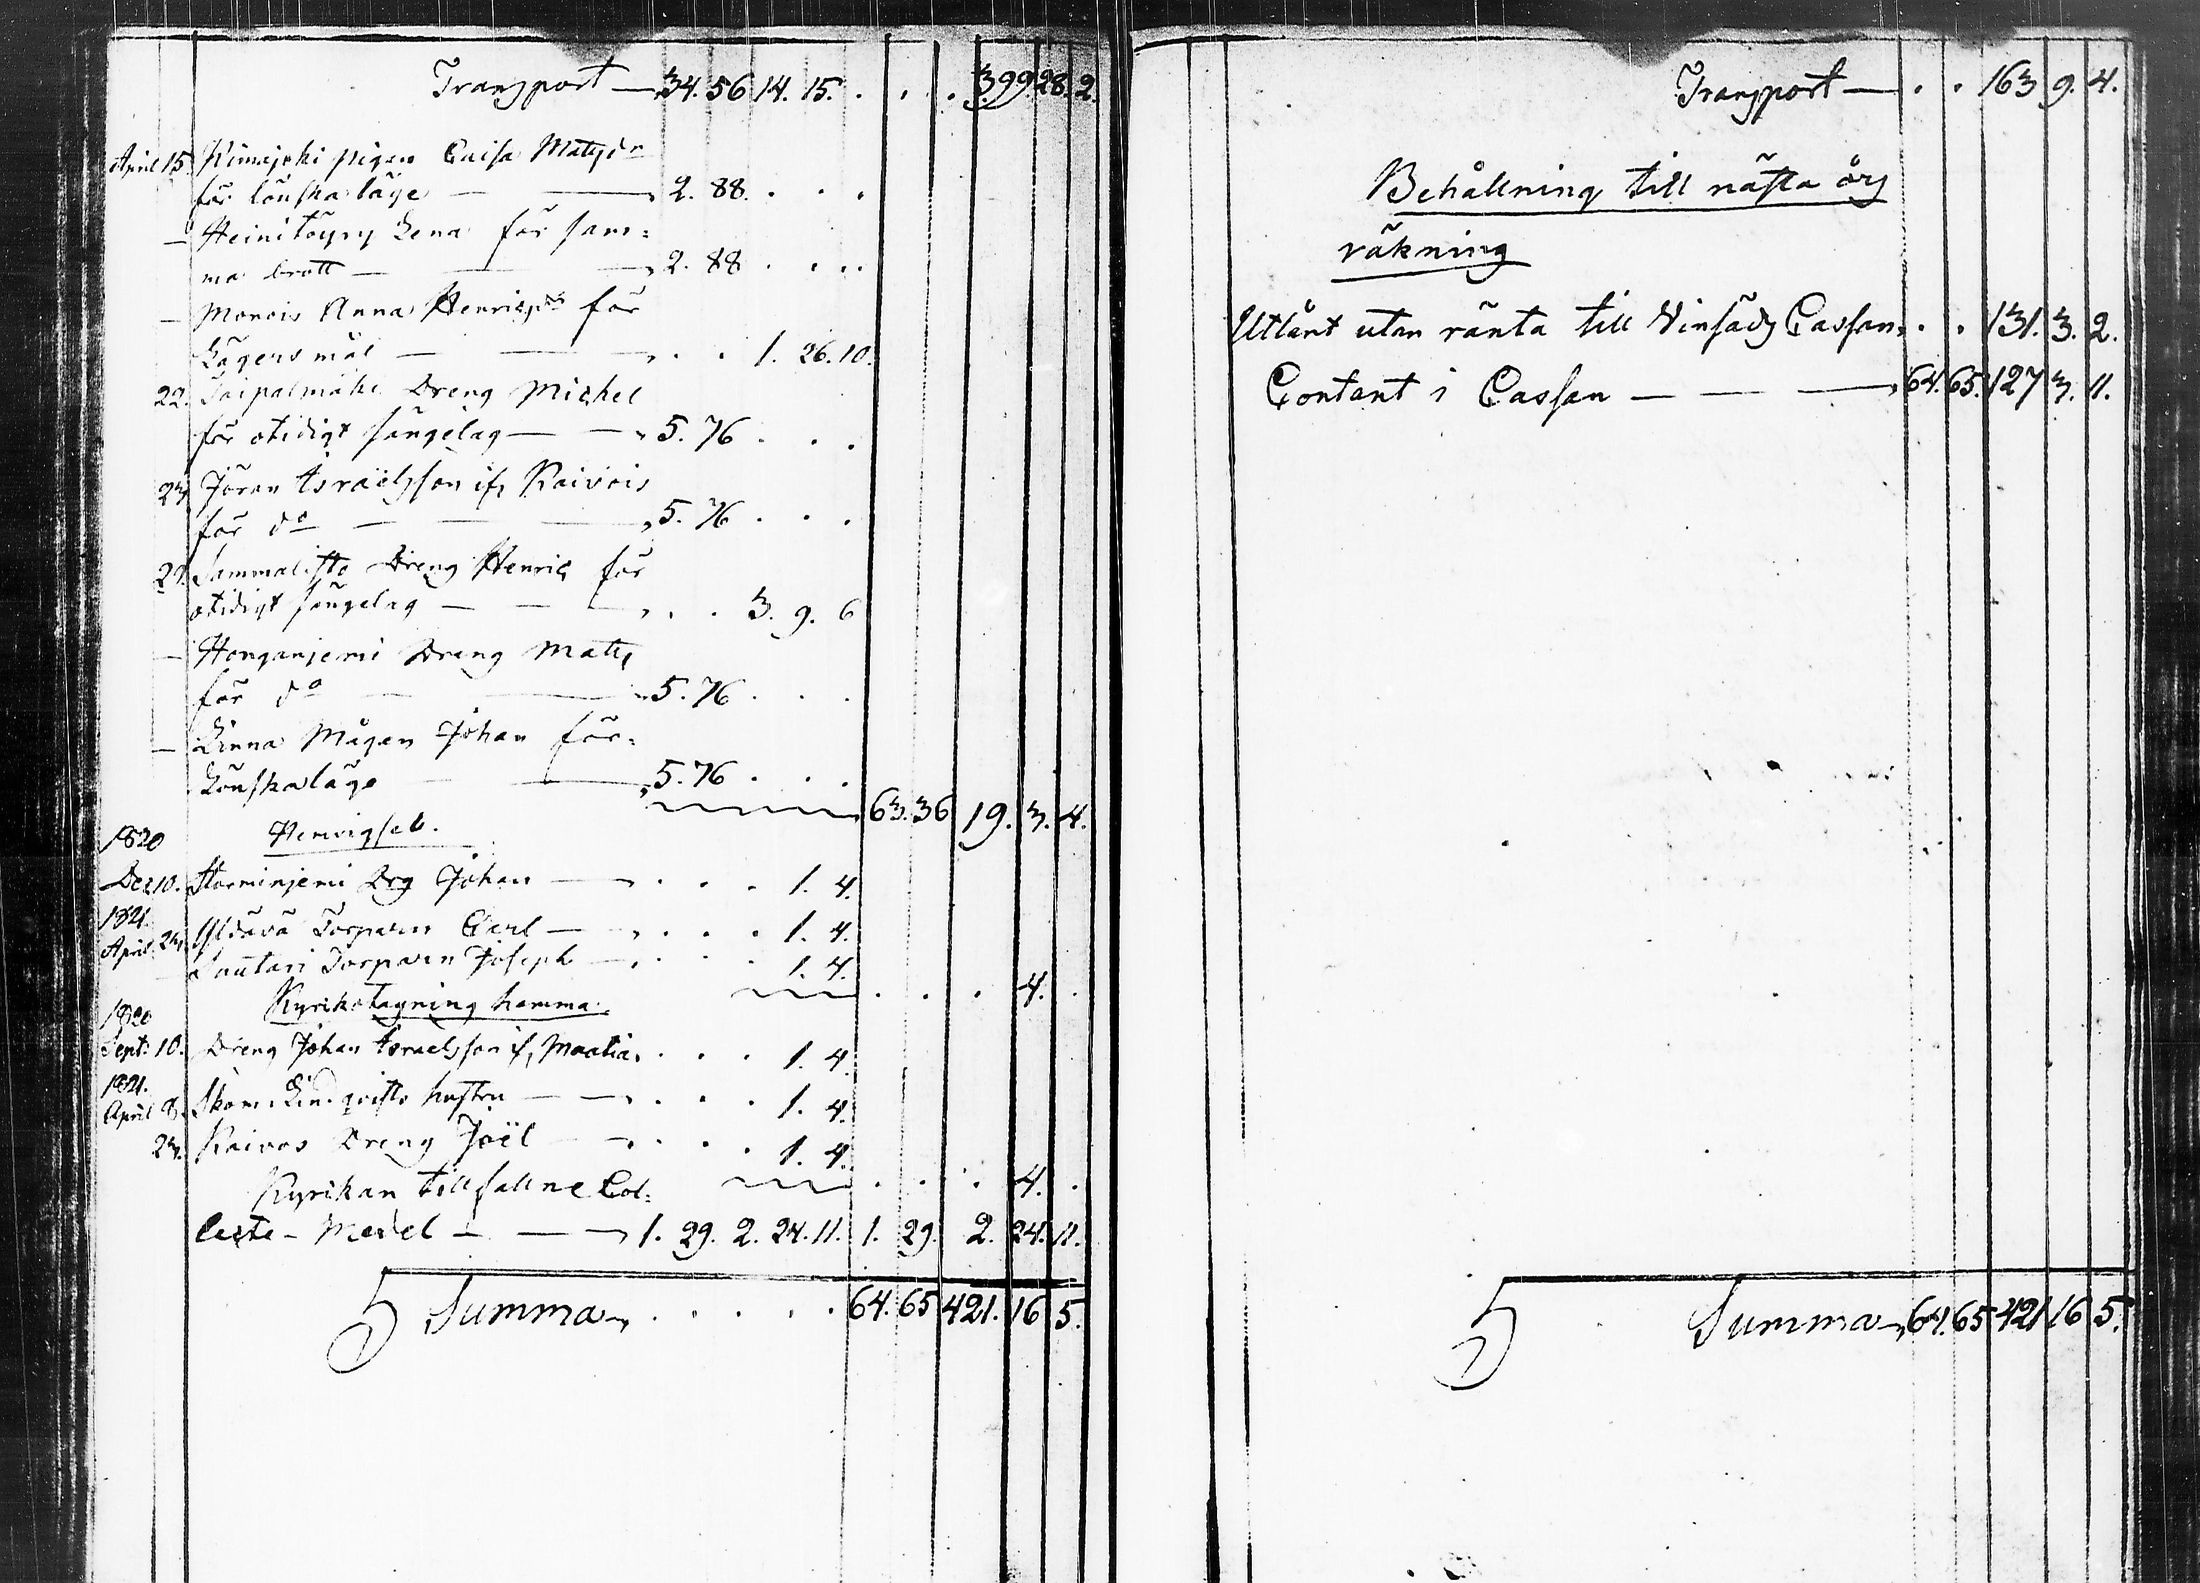 Transport — 34. 56 14. 15. . . . 399 28. 2.
April 15. Kimajoki pigan Caisa Matsdr
för lönskaläge — — 2. 88. . . .
— Heinitöyry Lena för sam=
ma brott — — 2. 88 . . .
— Monois Anna Henricsdr för
Lägersmål — — . . 1. 26. 10.
22. Saipalmäki Dreng Michel
för otidigt sängelag — — 5. 76 . . .
23. Jöran Israelsson if. Kaivois
för do — — 5. 76 . . .
29. Sammalisto Dreng Henric för
otidigt sängelag — — . . 3. 9. 6
— Honganjemi Dreng Mats
för do — — 5. 76 . . .
— Linna Mågen Johan för
Lönskaläge — 5. 76 . . .
63. 36 19. 3. 4.
1820 Hemvigsel.
Dec 10. Storminjemi Drg Johan — . . . 1. 4.
1821.
April 23. Yldävä Torparn Carl — . . . 1. 4.
— Lautari Torparn Joseph — . . . 1. 4.
. . . 4. .
Kyrkotagning hemma.
1820
Sept. 10. Dreng Johan Israelsson if. Maatia. . . . 1. 4.
1821.
April 8. Skom. Lindqvists hustru — — . . . 1. 4.
23. Kaivos Dreng Joël — . . . 1. 4.
. . . 4. .
Kyrikan tillfallne Col=
lecte-Medel — — 1. 29. 2. 24. 11. 1. 29. 2. 24. 11.
Summa . . . . . 64. 65 421. 16 5.
Transport — . . 163 9. 4.
Behållning till nästa års
räkning
Utlånt utan ränta till Vinsäds Cassan . . 131. 3. 2.
Contant i Cassan — — 64. 65. 127 3. 11.
Summa 64. 65 421 16 5.